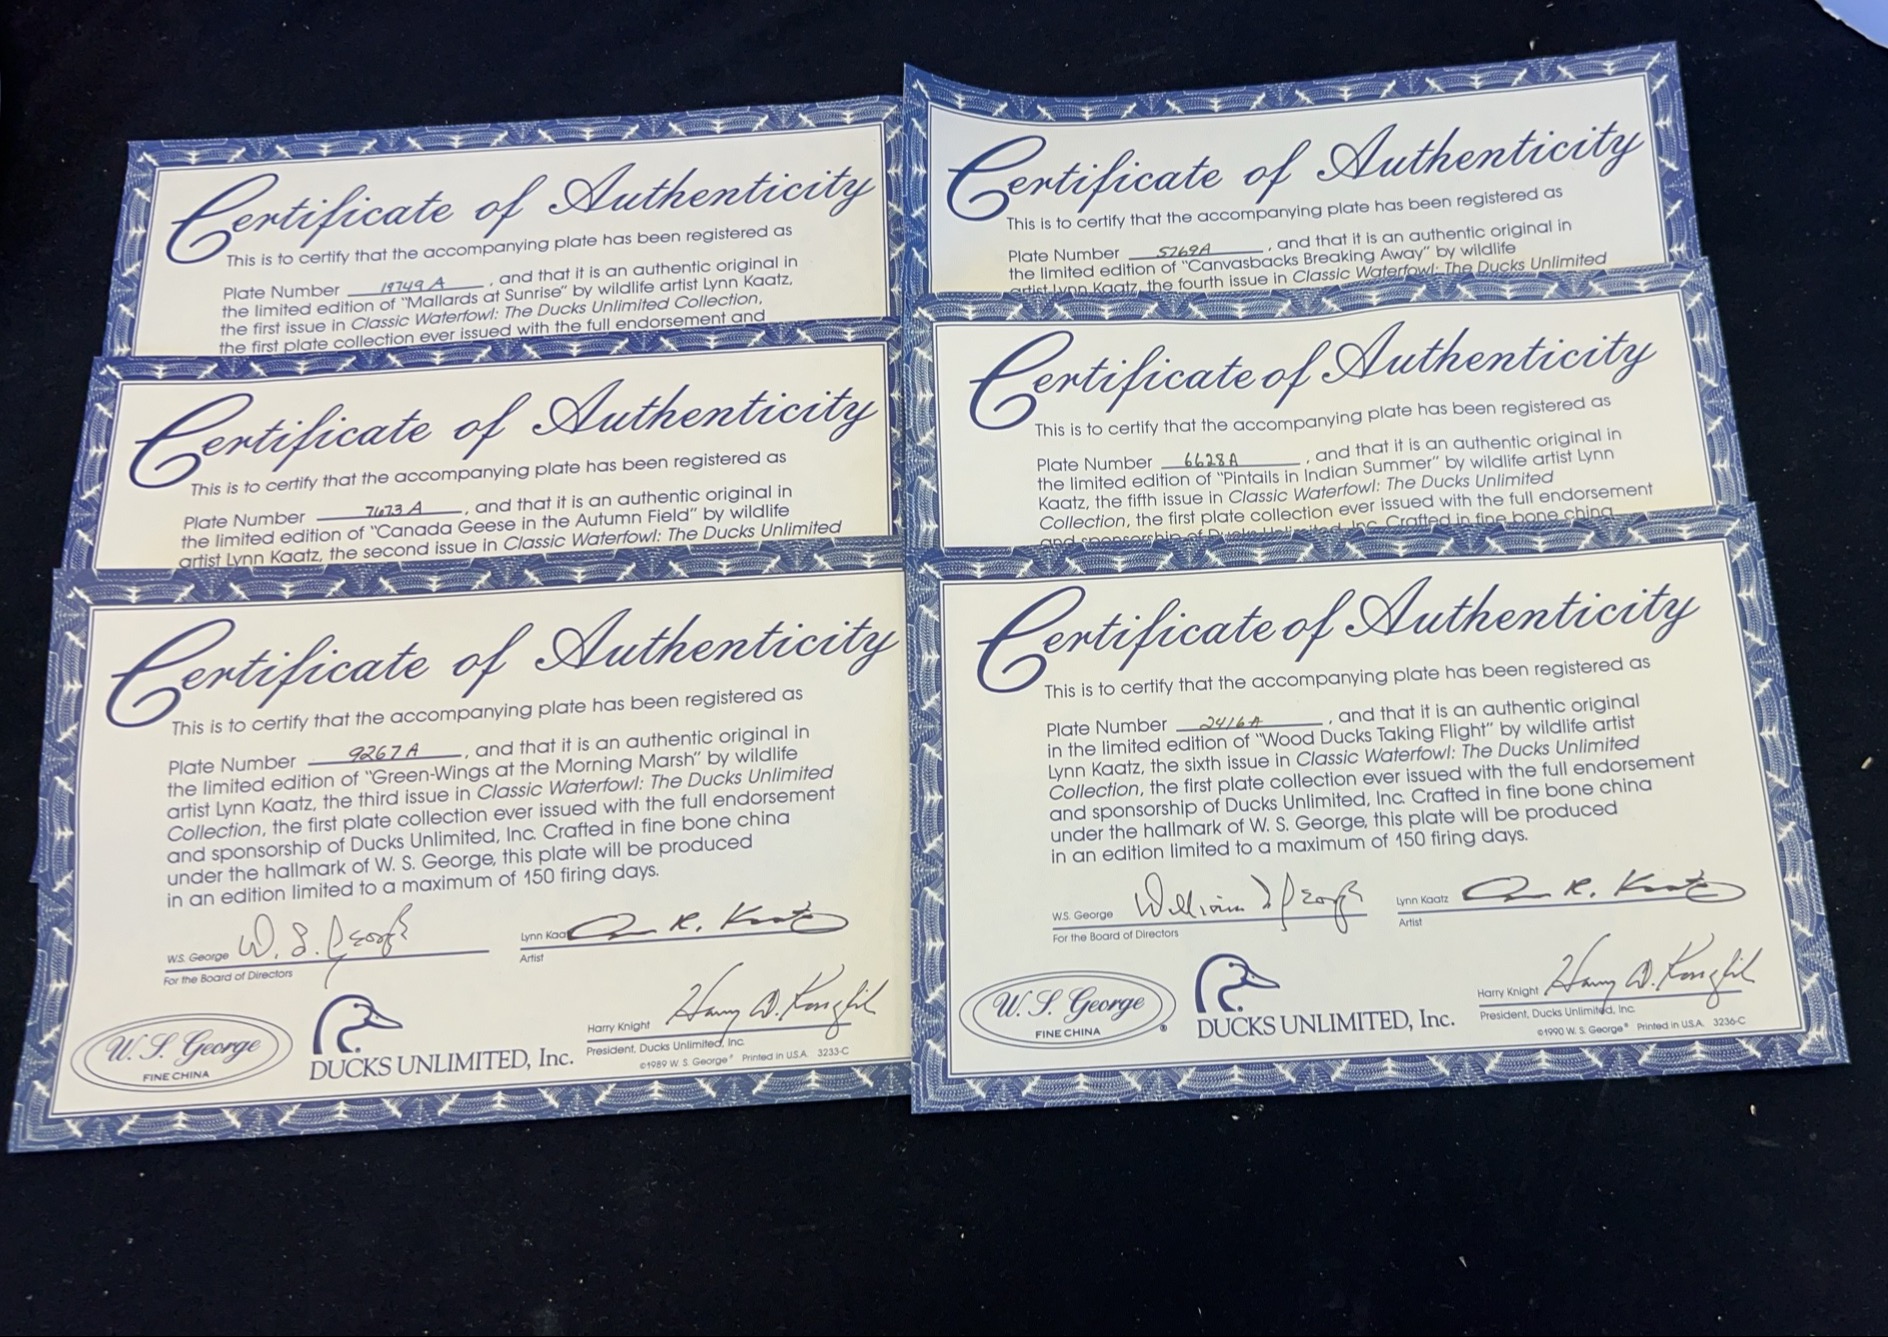 Certificate of Authenticity
This is to certify that the accompanying plate has been registered as
Plate Number 19749 A, and that it is an authentic original in
the limited edition of "Mallards at Sunrise" by wildlife artist Lynn Kaatz,
the first issue in Classic Waterfowl: The Ducks Unlimited Collection,
the first plate collection ever issued with the full endorsement and
Certificate of Authenticity
This is to certify that the accompanying plate has been registered as
Plate Number 7673 A, and that it is an authentic original in
the limited edition of "Canada Geese in the Autumn Field" by wildlife
artist Lynn Kaatz, the second issue in Classic Waterfowl: The Ducks Unlimited
Certificate of Authenticity
This is to certify that the accompanying plate has been registered as
Plate Number 9267 A, and that it is an authentic original in
the limited edition of "Green-Wings at the Morning Marsh" by wildlife
artist Lynn Kaatz, the third issue in Classic Waterfowl: The Ducks Unlimited
Collection, the first plate collection ever issued with the full endorsement
and sponsorship of Ducks Unlimited, Inc. Crafted in fine bone china
under the hallmark of W. S. George, this plate will be produced
in an edition limited to a maximum of 150 firing days.
W.S. George W. S. George
For the Board of Directors
Lynn Kaa
Artist
W. S. George
FINE CHINA
DUCKS UNLIMITED, Inc.
Harry Knight
President, Ducks Unlimited, Inc.
©1989 W. S. George® Printed in U.S.A. 3233-C
Certificate of Authenticity
This is to certify that the accompanying plate has been registered as
Plate Number 5769A, and that it is an authentic original in
the limited edition of "Canvasbacks Breaking Away" by wildlife
artist Lynn Kaatz, the fourth issue in Classic Waterfowl: The Ducks Unlimited
Certificate of Authenticity
This is to certify that the accompanying plate has been registered as
Plate Number 6628A, and that it is an authentic original in
the limited edition of "Pintails in Indian Summer" by wildlife artist Lynn
Kaatz, the fifth issue in Classic Waterfowl: The Ducks Unlimited
Collection, the first plate collection ever issued with the full endorsement
and sponsorship of Ducks Unlimited, Inc. Crafted in fine bone china
Certificate of Authenticity
This is to certify that the accompanying plate has been registered as
Plate Number 2416A, and that it is an authentic original
in the limited edition of "Wood Ducks Taking Flight" by wildlife artist
Lynn Kaatz, the sixth issue in Classic Waterfowl: The Ducks Unlimited
Collection, the first plate collection ever issued with the full endorsement
and sponsorship of Ducks Unlimited, Inc. Crafted in fine bone china
under the hallmark of W. S. George, this plate will be produced
in an edition limited to a maximum of 150 firing days.
W.S. George William S George
For the Board of Directors
Lynn Kaatz
Artist
W. S. George
FINE CHINA
DUCKS UNLIMITED, Inc.
Harry Knight
President, Ducks Unlimited, Inc.
©1990 W. S. George® Printed in U.S.A. 3236-C